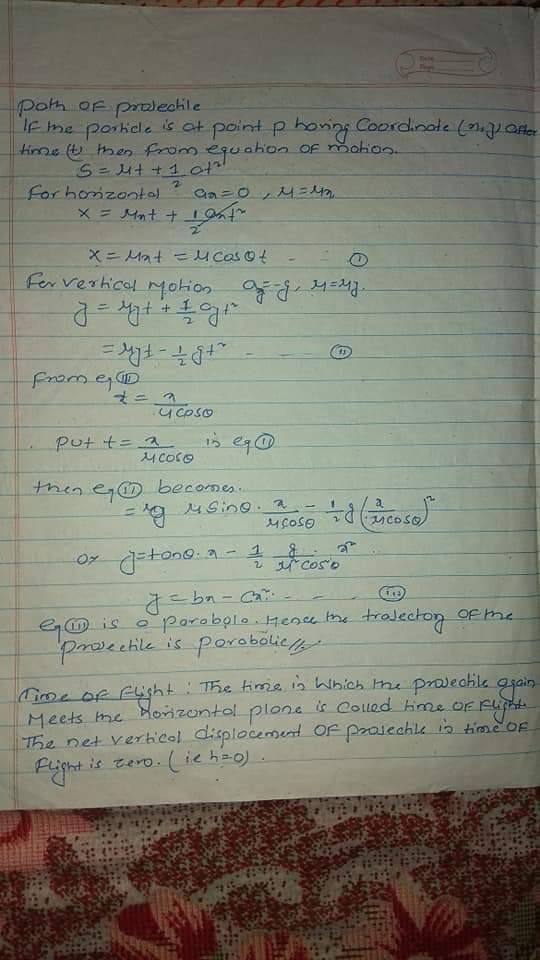 Date
Page
Path of projectile
If the particle is at point p having Coordinate (x,y) after
time (t) then from equation of motion.
S = ut + 1/2 at²
For horizontal ax = 0 , u = ux
x = uxt + 1/2 axt²
x = uxt = u cosθ t - - - (i)
For vertical motion ay = -g, u = uy.
y = uyt + 1/2 ayt²
= uyt - 1/2 gt² - - - - (ii)
From eq (iii)
t = x / u cosθ
Put t = x / u cosθ in eq (ii)
then eq (ii) becomes.
= u sinθ · x / u cosθ - 1/2 g (x / u cosθ)²
or y = tanθ · x - 1/2 g / u² cos²θ · x²
y = bx - cx² - - - - (iii)
eq (iii) is a parabola. Hence the trajectory of the
projectile is parabolic //
Time of Flight : The time in which the projectile again
Meets the horizontal plane is called time of flight.
The net vertical displacement of projectile in time of
flight is zero. (ie h=0) .